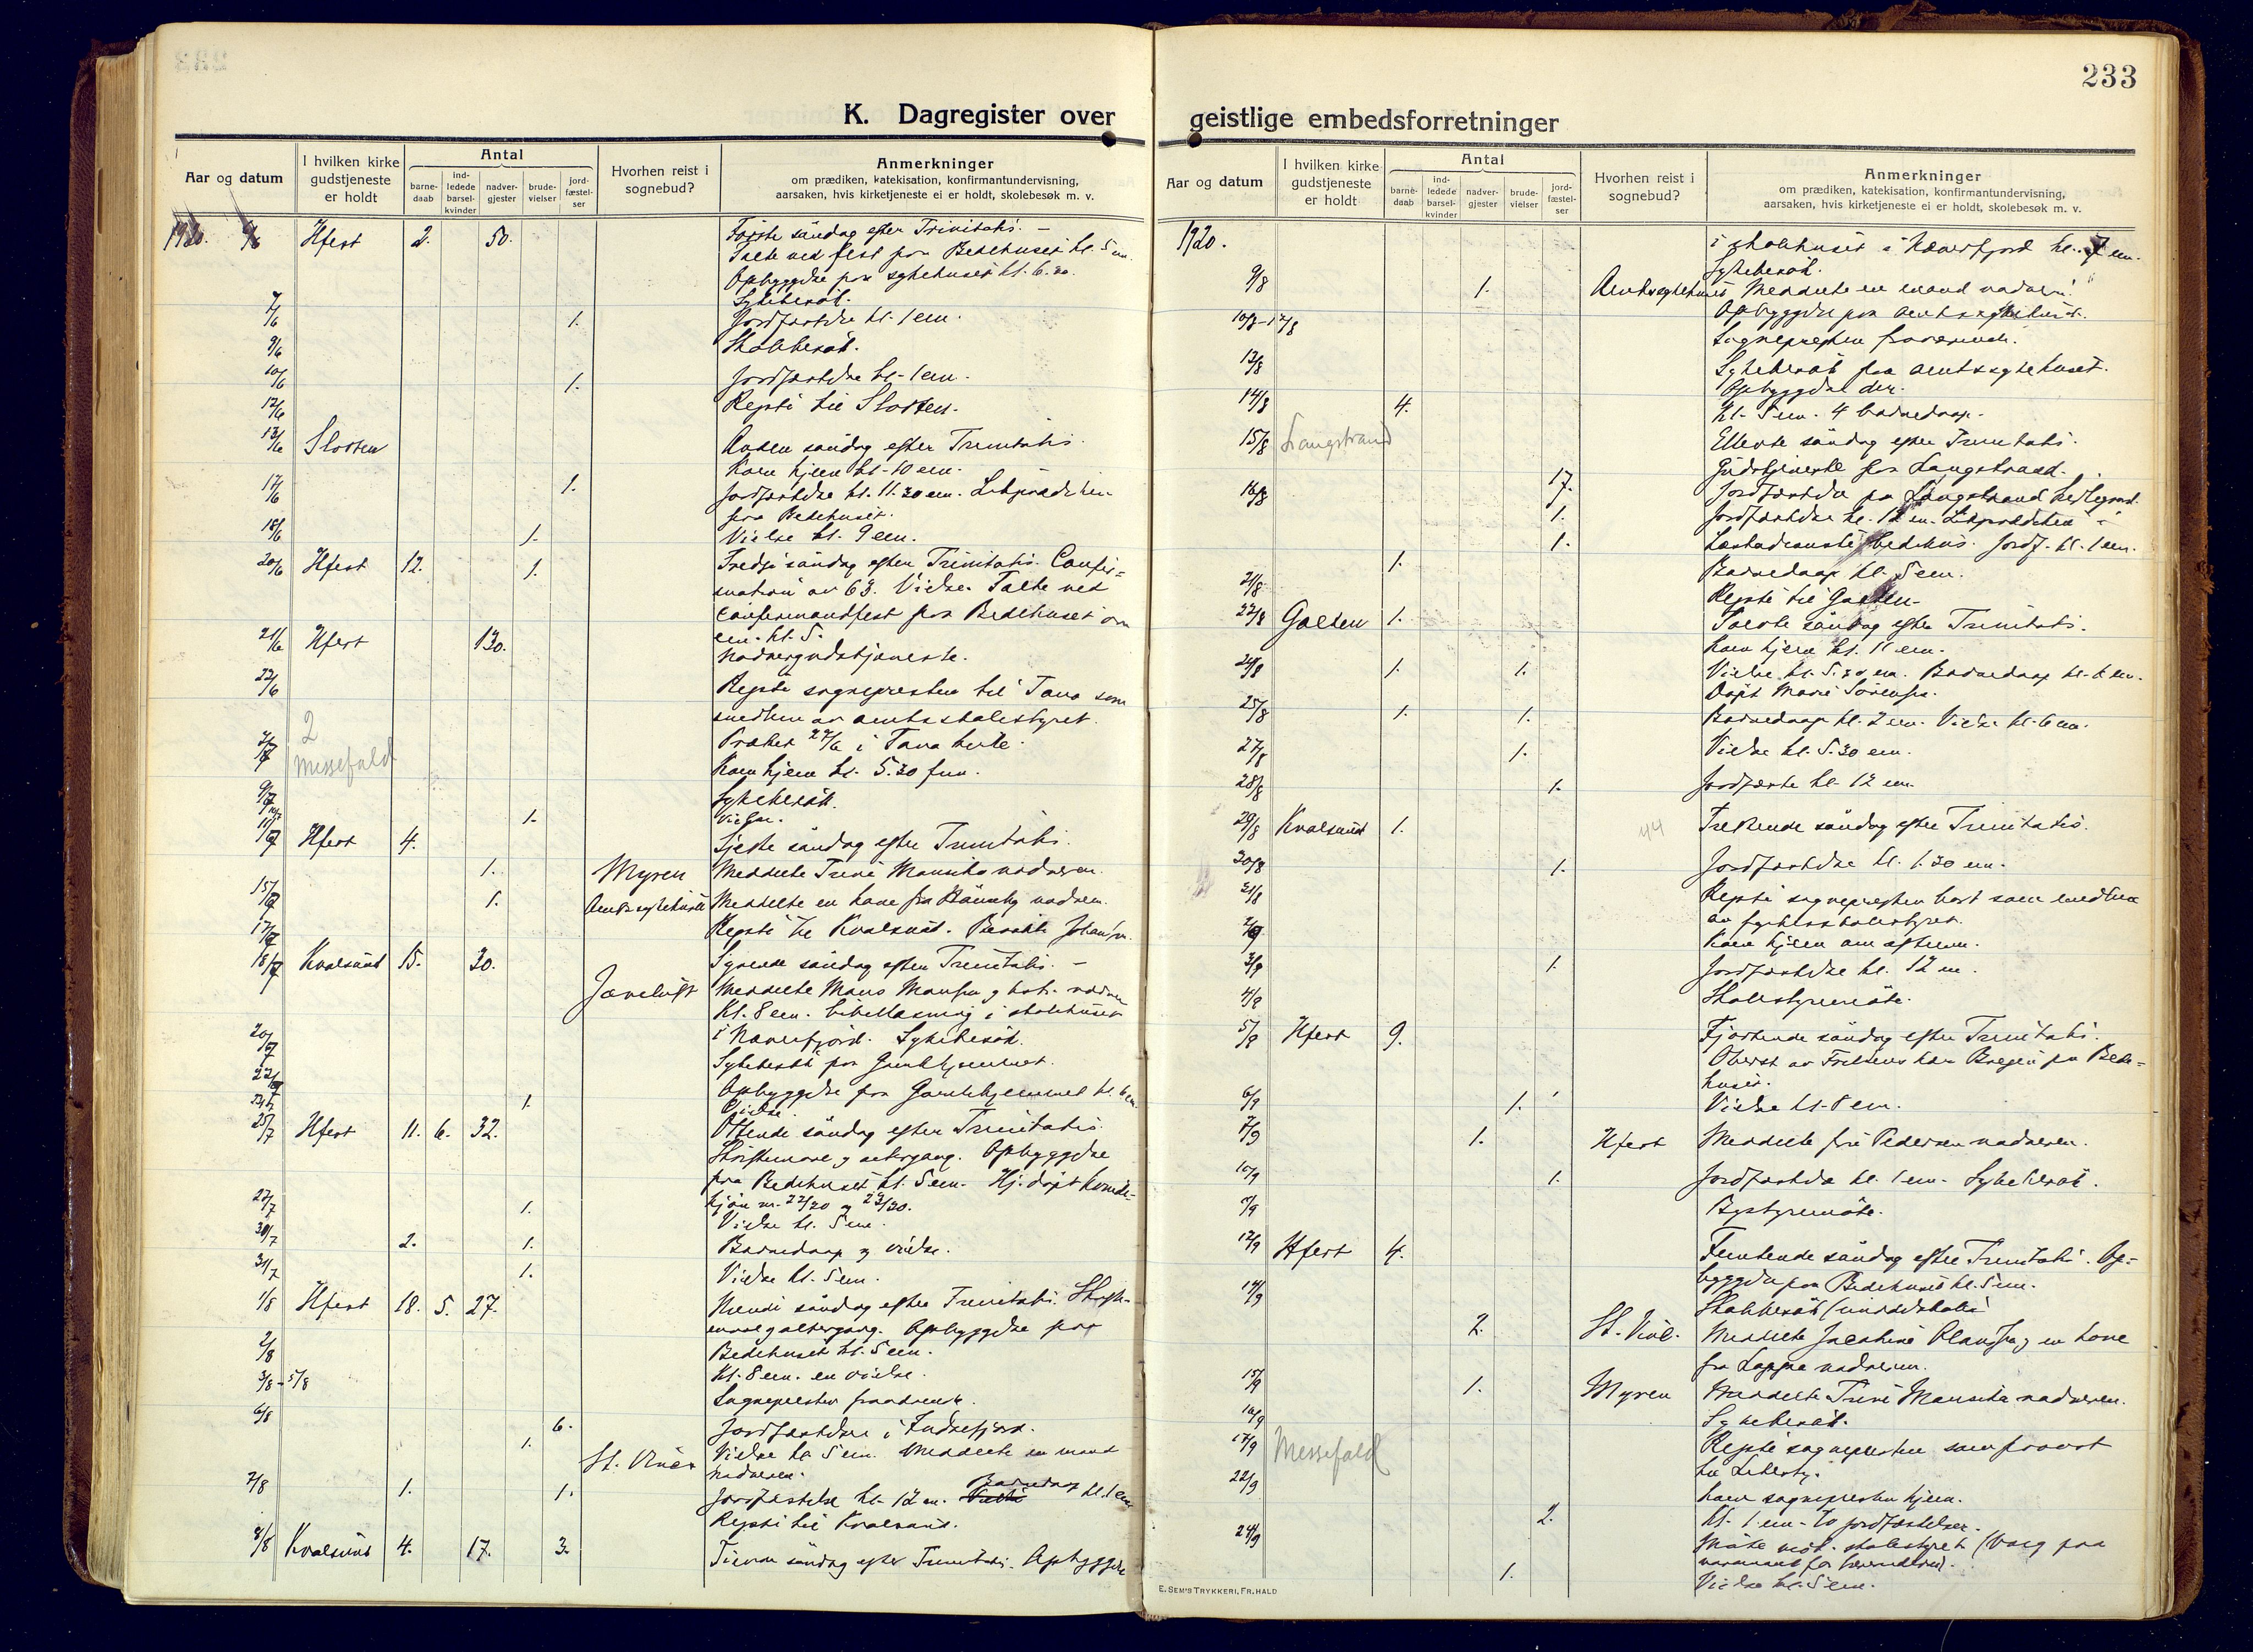 233
K. Dagregister over
geistlige embedsforretninger
Aar og datum
I hvilken kirke gudstjeneste er holdt
Antal
barne-daab
ind-ledede barsel-kvinder
nadver-gjester
brude-vielser
jord-fæstel-ser
Hvorhen reist i sognebud?
Anmerkninger
om prædiken, katekisation, konfirmantundervisning,
aarsaken, hvis kirketjeneste ei er holdt, skolebesøk m. v.
1920. 6/6 Hfest 2. 50. Første søndag efter Trinitatis. –
Talte ved fest paa Bedehuset kl. 5 em.
Opbyggelse paa sykehuset kl. 6.30.
Sykebesøk.
7/6 1. Jordfæstelse kl. 1 em.
9/6 Skolebesøk.
10/6 1. Jordfæstelse kl. 1 em.
12/6 Reiste til Slotten.
13/6 Slotten Anden søndag efter Trinitatis.
Kom hjem kl. 10 em.
17/6 1. Jordfæstelse kl. 11.30 em. Likprædiken
fra Bedehuset.
18/6 1. Vielse kl. 9 em.
20/6 Hfest 12. 1. Tredje søndag efter Trinitatis. Confir-
mation av 63. Vielse. Talte ved
confirmandfest paa Bedehuset om
em. kl. 5.
21/6 Hfest 130. Nadvergudstjeneste.
22/6 Reiste sognepresten til Tana som
medlem av amtsskolestyret.
Præket 27/6 i Tana kirke.
2/7 2 Messefald Kom hjem kl. 5.30 fm.
9/7 Sykebesøk.
1. Vielse.
11/7 Hfest 4. Sjette søndag efter Trinitatis.
1. Myren Meddelte Trine Mansika nadveren.
15/7 1. Amtssykehuset Meddelte en kone fra nadveren.
17/7 Reiste til Kvalsund.
18/7 Kvalsund 15. 30. Syvende søndag efter Trinitatis. –
Jæveluft Meddelte Mans Mansen og
Kl. 8 em. bibellæsning i skolehuset
i Næverfjord. Sykebesøk.
20/7 Sykebesøk paa Gamlehjemmet.
22/7 Opbyggelse paa Gamlehjemmet kl. 6 em.
1. Vielse.
25/7 Hfest 11. 6. 32. Ottende søndag efter Trinitatis.
Skriftemaal og altergang. Opbyggelse
paa Bedehuset kl. 5 em. Hj. døpt kvinde-
kjøn nr. 22/20 og 23/20.
27/7 1. Vielse kl. 5 em.
30/7 2. 1. Barnedaap og vielse.
31/7 1. Vielse kl. 5 em.
1/8 Hfest 18. 5. 27. Niende søndag efter Trinitatis. Skrifte-
maal og altergang. Opbyggelse paa
Bedehuset kl. 5 em.
2/8 Kl. 8 em. en vielse.
3/8 - 5/8 Sognepresten fraværende.
6/8 6. Jordfæstelse i
1. Vielse kl. 5 em. Meddelte en mand
nadveren.
7/8 1. 1. Jordfæstelse kl. 12 m. Barnedaap kl. 1 em.
Reiste til Kvalsund.
8/8 Kvalsund 4. 17. 3. Tiende søndag efter Trinitatis. Opbyggelse
Aar og datum
I hvilken kirke gudstjeneste er holdt
Antal
barne-daab
ind-ledede barsel-kvinder
nadver-gjester
brude-vielser
jord-fæstel-ser
Hvorhen reist i sognebud?
Anmerkninger
om prædiken, katekisation, konfirmantundervisning,
aarsaken, hvis kirketjeneste ei er holdt, skolebesøk m. v.
1920. i skolehuset i Næverfjord kl. 7 em.
Sykebesøk.
9/8 1. Amtssykehuset Meddelte en mand nadveren.
Opbyggelse paa amtssykehuset.
10/8-12/8 Sognepresten fraværende.
13/8 Sykebesøk paa amtssykehuset.
Opbyggelse der.
14/8 4. Kl. 5 em. 4 barnedaap.
15/8 Langstrand Ellevte søndag efter Trinitatis.
Gudstjeneste paa Langstrand.
17. Jordfæstelse paa Langstrand kirkegaard.
16/8 1. Jordfæstelse kl. 12 m. Likprædiken i
1. Læstadianske bedehus. Jordf. kl. 1 em.
1. Barnedaap kl. 5 em.
21/8 Reiste til Galten.
22/8 Galten 1. Tolvte søndag efter Trinitatis.
Kom hjem kl. 11 em.
24/8 1. 1. Vielse kl. 5.30 em. Barnedaap kl. 6 em.
Døpt Marie Sørensen.
25/8 1. 1. Barnedaap kl. 2 em. Vielse kl. 6 em.
27/8 1. Vielse kl. 5.30 em.
28/8 1. Jordfæste kl. 12 em.
29/8 Kvalsund 1. 44 Trettende søndag efter Trinitatis.
30/8 1. Jordfæstelse kl. 1.30 em.
31/8 Reiste sognepresten bort som medlem
av fylkesskolestyret.
2/9 Kom hjem om aftenen.
3/9 1. Jordfæstelse kl. 12 m.
4/9 Skolestyremøte.
5/9 Hfest 9. Fjortende søndag efter Trinitatis.
Oberst av Frelsens hær paa Bede-
huset.
6/9 1. Vielse kl. 8 em.
7/9 1. Hfest Meddelte fru Pedersen nadveren.
10/9 1. Jordfæstelse kl. 1 em. Sykebesøk.
Bystyremøte.
12/9 Hfest 4. Femtende søndag efter Trinitatis. Op-
byggelse paa Bedehuset kl. 5 em.
14/9 Skolebesøk (middelskolen)
2. Meddelte en kone
fra Loppa nadveren.
15/9 1. Myren Meddelte Trine Mansika nadveren.
16/9 Sykebesøk.
17/9 Messefald Reiste sognepresten som provst
til
22/9 Kom sognepresten hjem.
2. Kl. 1 em. to jordfæstelser.
24/9 Møte skolestyret (valg paa
varamand for
1. Vielse kl. 5 em.
E. SEM'S TRYKKERI, FR.HALD